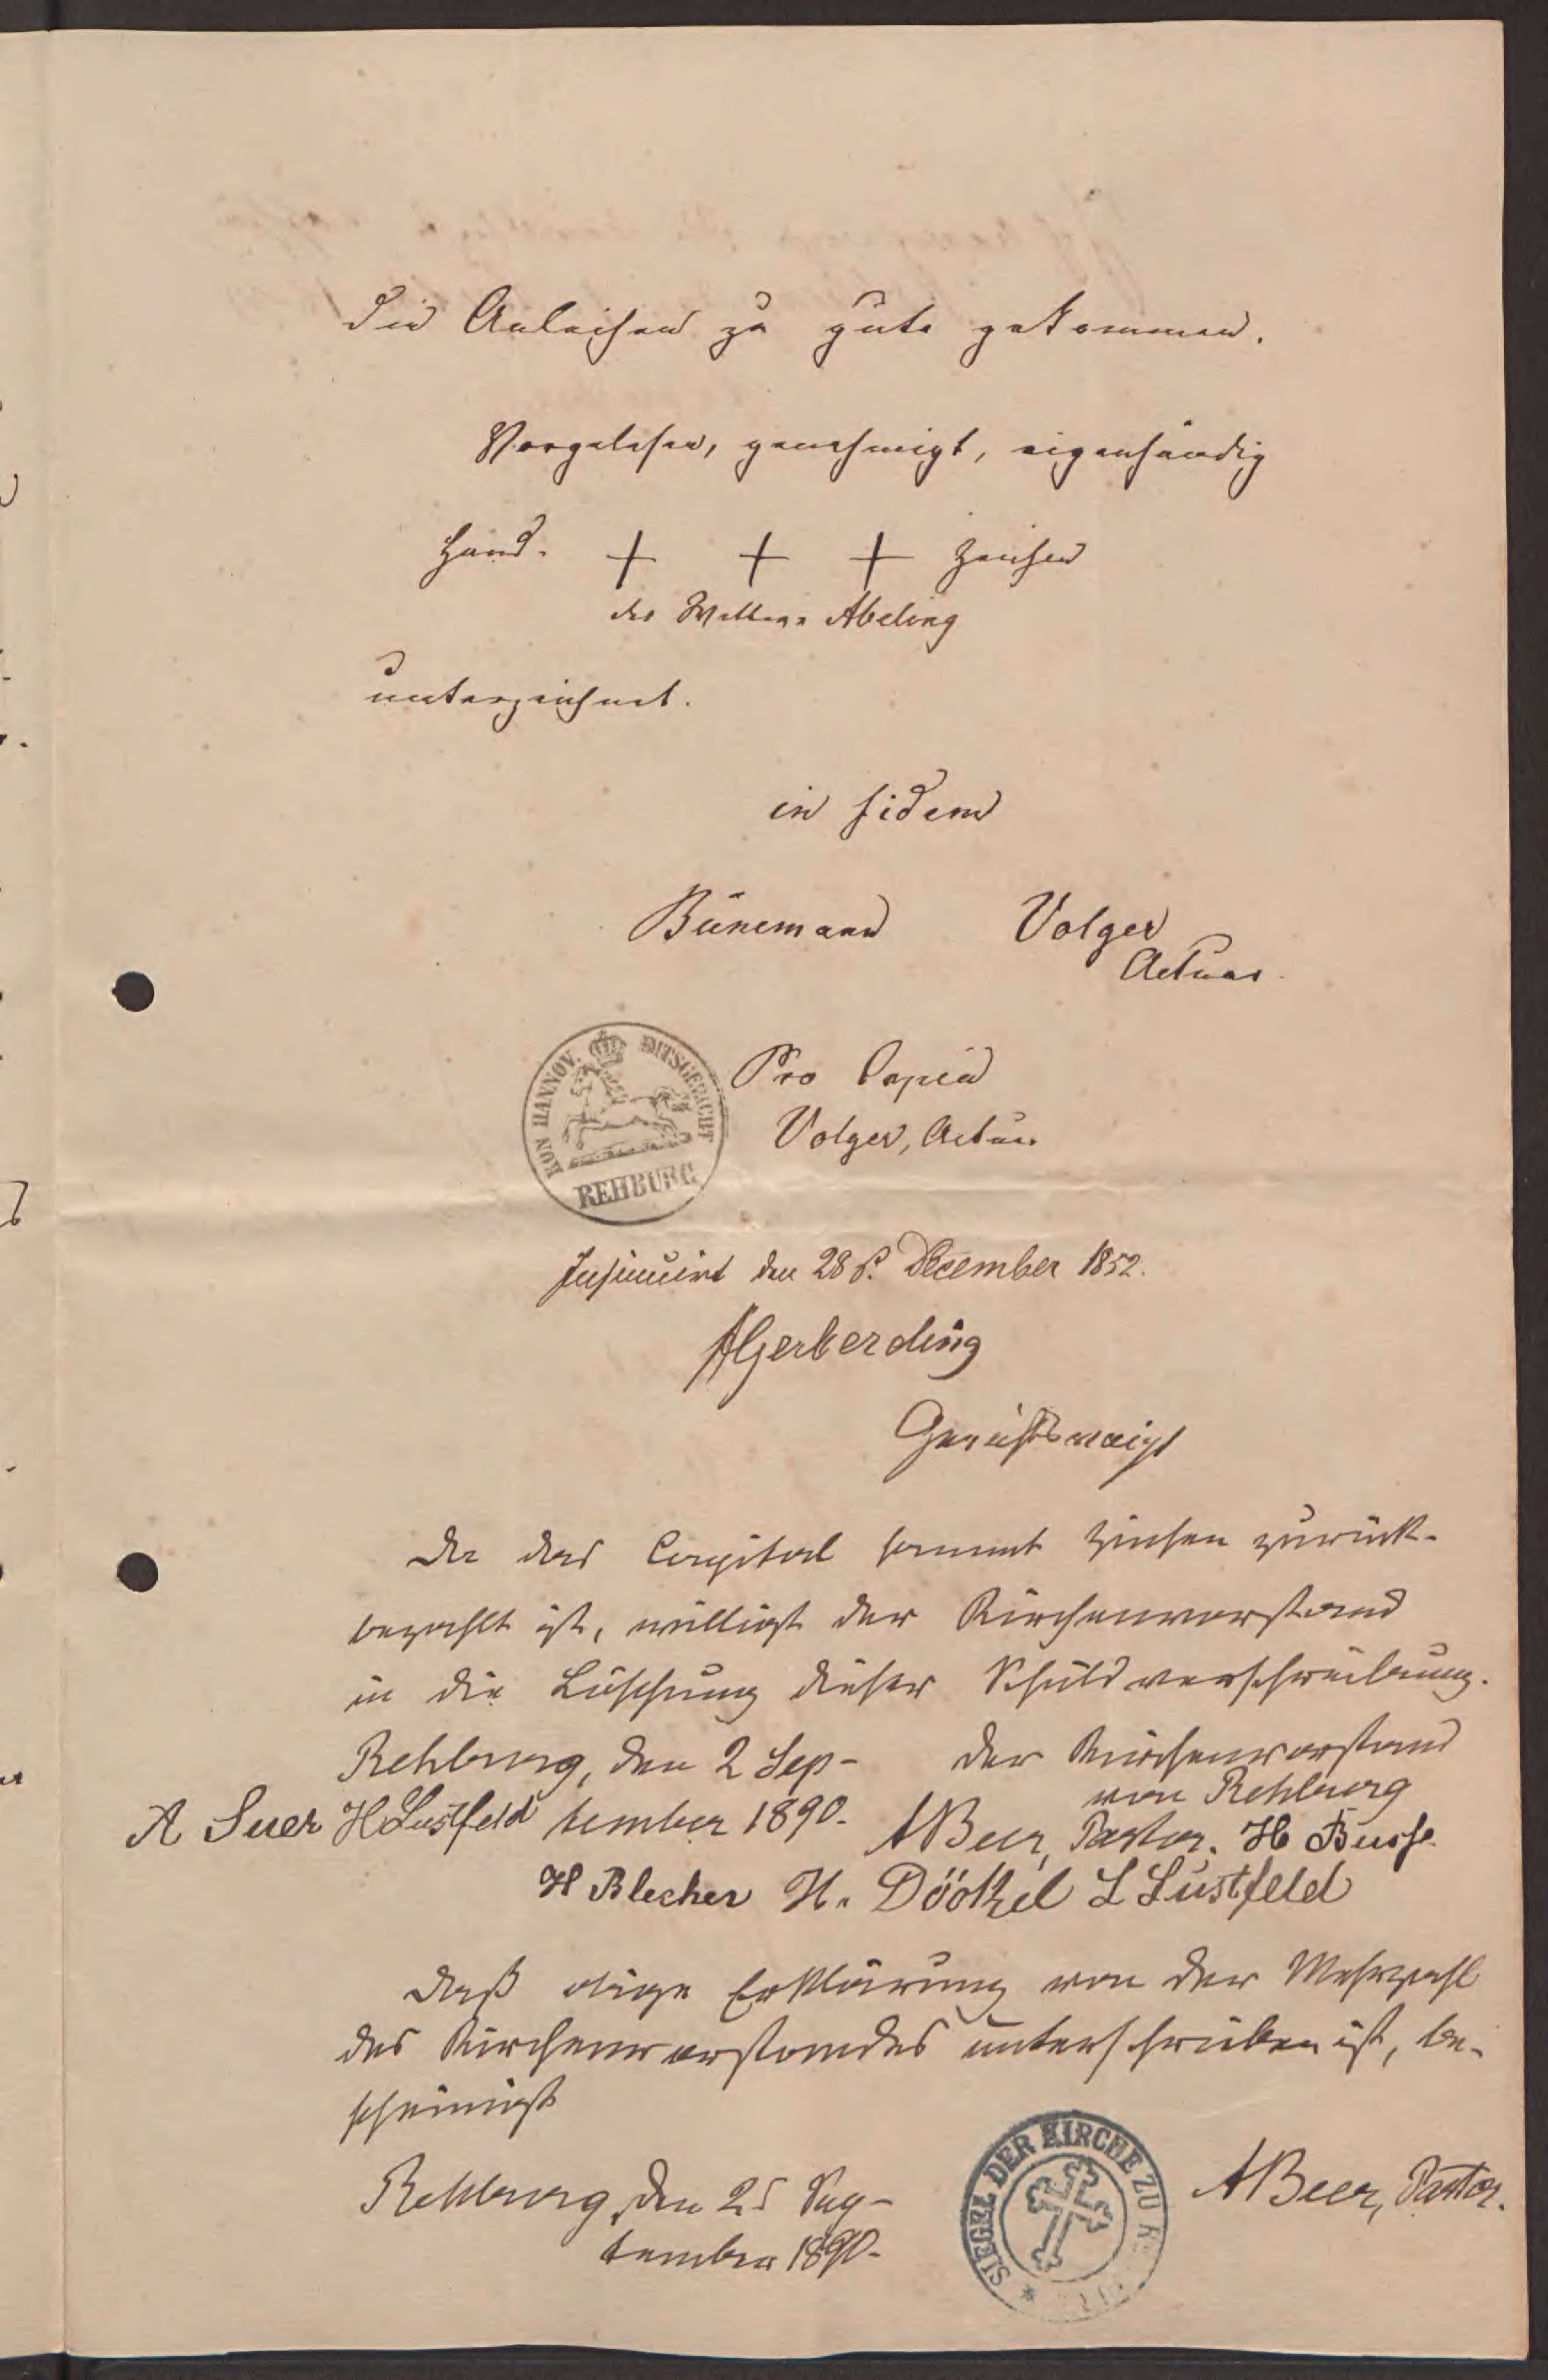 die Anleihen zu gute gekommen.
Vorgelesen, genehmigt, eigenhändig
Hand- + + + Zeichen
der Wittwe Abeling
unterzeichnet.
in fidem
Bünemann Volger
Actuar.
KÖN HANNOV. AMTSGERICHT
REHBURG
Pro Copia
Volger, Actuar
Insinuirt den 28 t. December 1852.
AGerberding
Gerichtsvoigt
Da das Capital sammt Zinsen zurück-
bezahlt ist, willigt der Kirchenvorstand
in die Löschung dieser Schuldverschreibung.
Rehburg, den 2 Sep- der Kirchenvorstand
von Rehburg
A Suer H Lustfeld tember 1890. ABeer, Pastor. H Busse
H Blecher H. Döötzel L Lustfeld
Daß obige Erklärung von der Mehrzahl
des Kirchenvorstandes unterschrieben ist, be-
scheinigt
Rehburg, den 25 Sep-
tember 1890.
SIEGEL DER KIRCHE ZU
ABeer, Pastor.